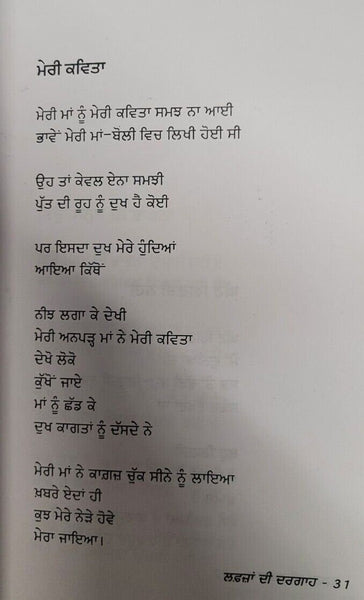 ਮੇਰੀ ਕਵਿਤਾ
ਮੇਰੀ ਮਾਂ ਨੂੰ ਮੇਰੀ ਕਵਿਤਾ ਸਮਝ ਨਾ ਆਈ
ਭਾਵੇਂ ਮੇਰੀ ਮਾਂ-ਬੋਲੀ ਵਿਚ ਲਿਖੀ ਹੋਈ ਸੀ
ਉਹ ਤਾਂ ਕੇਵਲ ਏਨਾ ਸਮਝੀ
ਪੁੱਤ ਦੀ ਰੂਹ ਨੂੰ ਦੁਖ ਹੈ ਕੋਈ
ਪਰ ਇਸਦਾ ਦੁਖ ਮੇਰੇ ਹੁੰਦਿਆਂ
ਆਇਆ ਕਿੱਥੋਂ
ਨੀਝ ਲਗਾ ਕੇ ਦੇਖੀ
ਮੇਰੀ ਅਨਪੜ੍ਹ ਮਾਂ ਨੇ ਮੇਰੀ ਕਵਿਤਾ
ਦੇਖੋ ਲੋਕੋ
ਕੁੱਖੋਂ ਜਾਏ
ਮਾਂ ਨੂੰ ਛੱਡ ਕੇ
ਦੁਖ ਕਾਗਤਾਂ ਨੂੰ ਦੱਸਦੇ ਨੇ
ਮੇਰੀ ਮਾਂ ਨੇ ਕਾਗ਼ਜ਼ ਚੁੱਕ ਸੀਨੇ ਨੂੰ ਲਾਇਆ
ਖ਼ਬਰੇ ਏਦਾਂ ਹੀ
ਕੁਝ ਮੇਰੇ ਨੇੜੇ ਹੋਵੇ
ਮੇਰਾ ਜਾਇਆ।
ਲਫ਼ਜ਼ਾਂ ਦੀ ਦਰਗਾਹ - 31